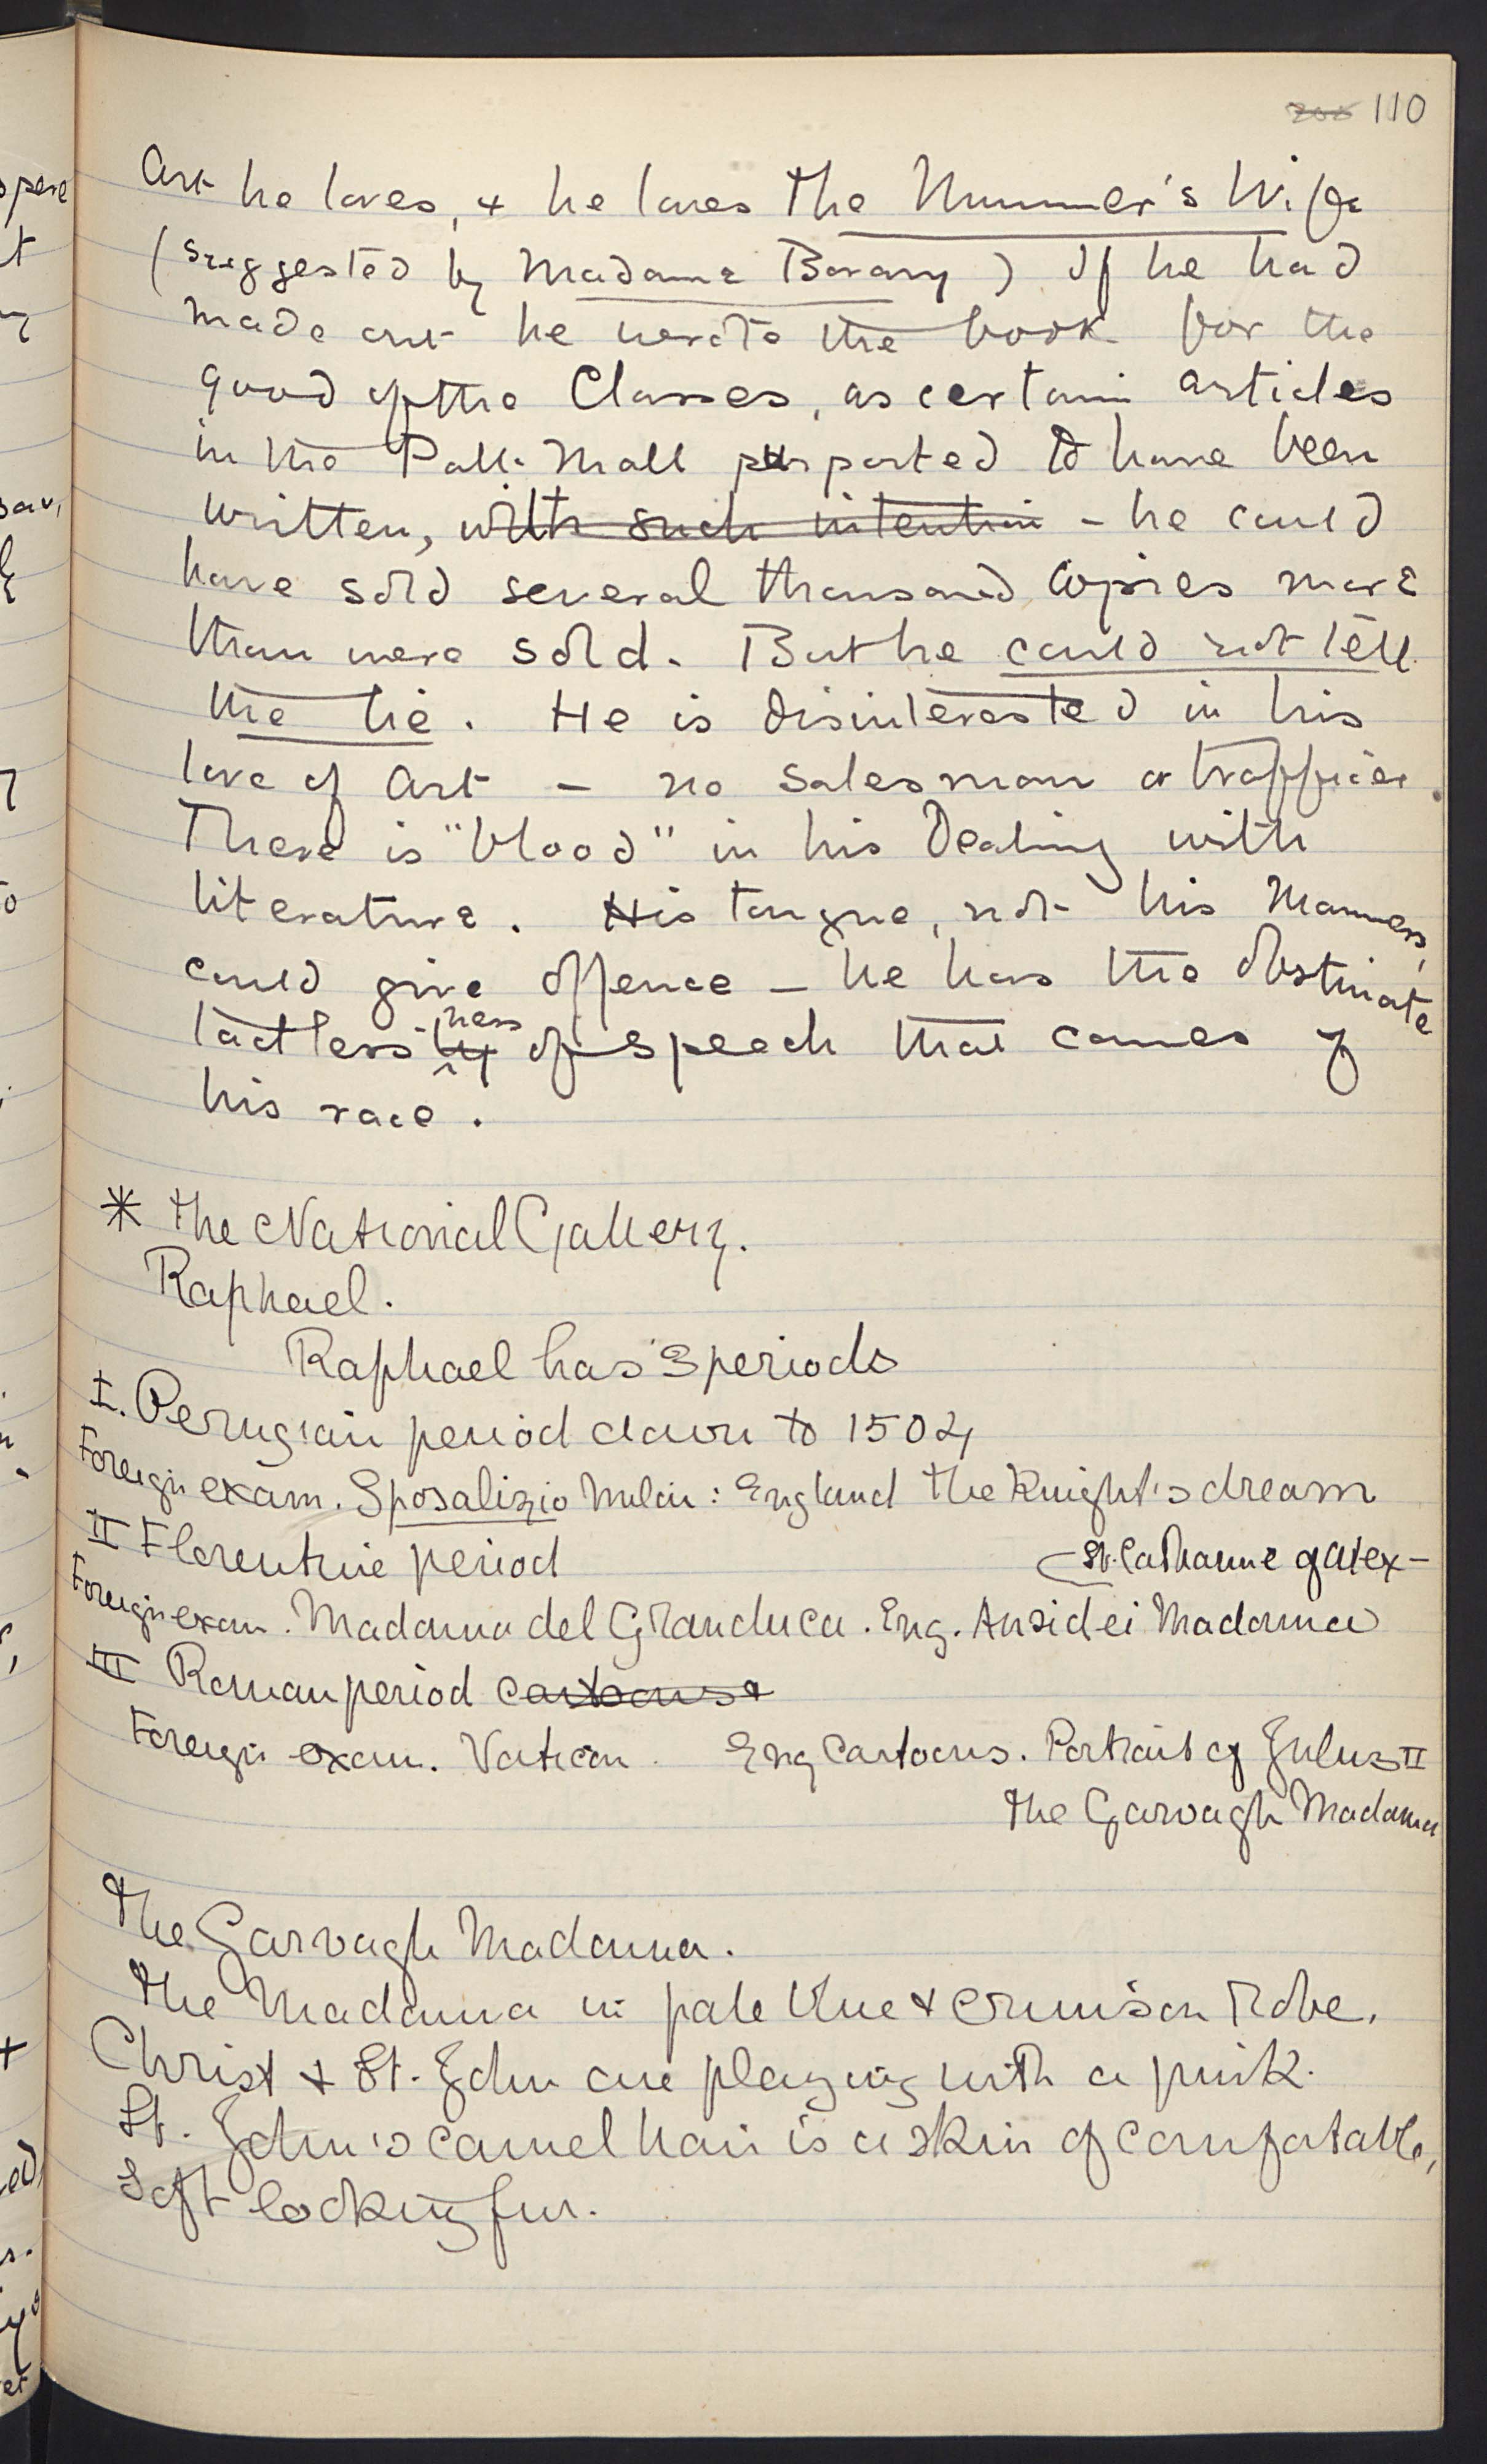 110
Art he loves, & he loves the Mummer's Wife
(suggested by Madame Bovary) If he had
made out he wrote the book for the
good of the Classes, as certain articles
in the Pall-Mall purported to have been
written, with such intention - he could
have sold several thousand copies more
than were sold. But he could not tell
the lie. He is disinterested in his
love of Art - no salesman or trafficer.
There is "blood" in his Dealing with
literature. His tongue, not his manners,
could give offence - he has the obstinate
tactlessness of speech that comes of
his race.
* The National Gallery.
Raphael.
Raphael has 3 periods
I. Perugian period down to 1504
Foreign exam. Sposalizio Milan: England The Knight's dream
II Florentine period
St. Catharine of Alex-
Foreign exam. Madonna del Granduca. Eng. Ansidei Madonna
III Roman period Cartoons &
Foreign exam. Vatican Eng Cartoons. Portrait of Julius II
The Garvagh Madonna
The Garvagh Madonna.
The Madonna in pale blue & crimson robe.
Christ & St. John are playing with a pink.
St. John's camel hair is a skin of comfortable,
soft looking fur.